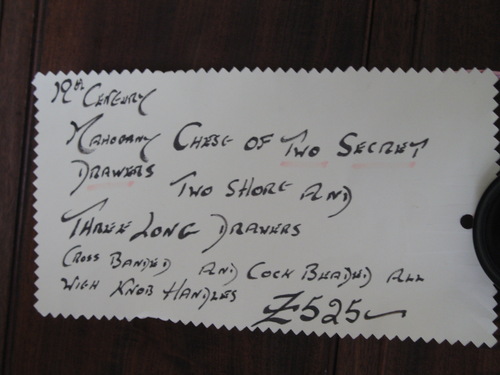 19th CENTURY
MAHOGANY CHEST OF TWO SECRET
DRAWERS TWO SHORT AND
THREE LONG DRAWERS
CROSS BANDED AND COCK BEADED ALL
WITH KNOB HANDLES £525